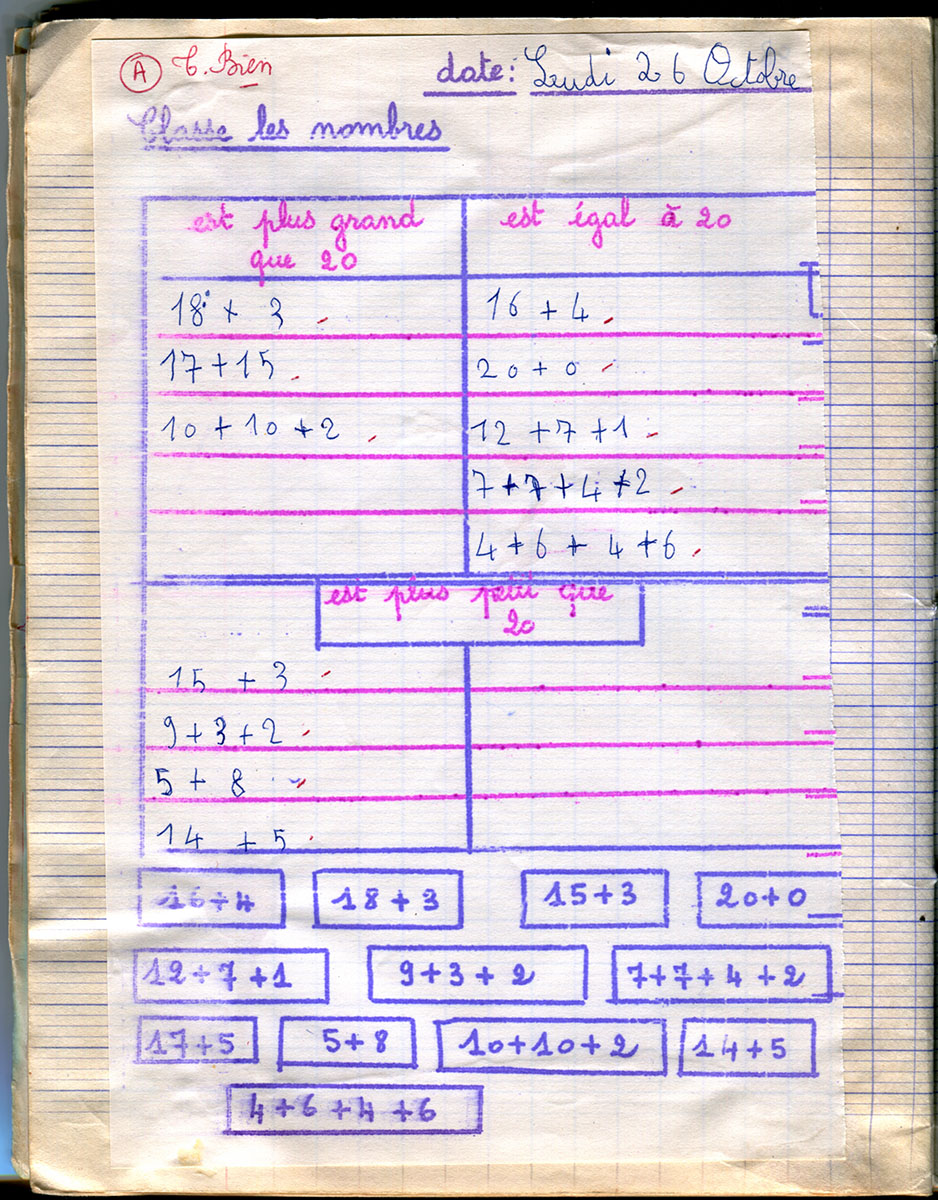 A T. Bien
date: Lundi 26 Octobre
Classe les nombres
est plus grand
que 20
est égal à 20
18 + 3
16 + 4
17+15
20+0
10+10+2
12+7+1
7+7+4+2
4+6+4+6
est plus petit que
20
15 + 3
9+3+2
5 + 8
14 + 5
16+4 18+3 15+3 20+0
12+7+1 9+3+2 7+7+4+2
17+5 5+8 10+10+2 14+5
4+6+4+6